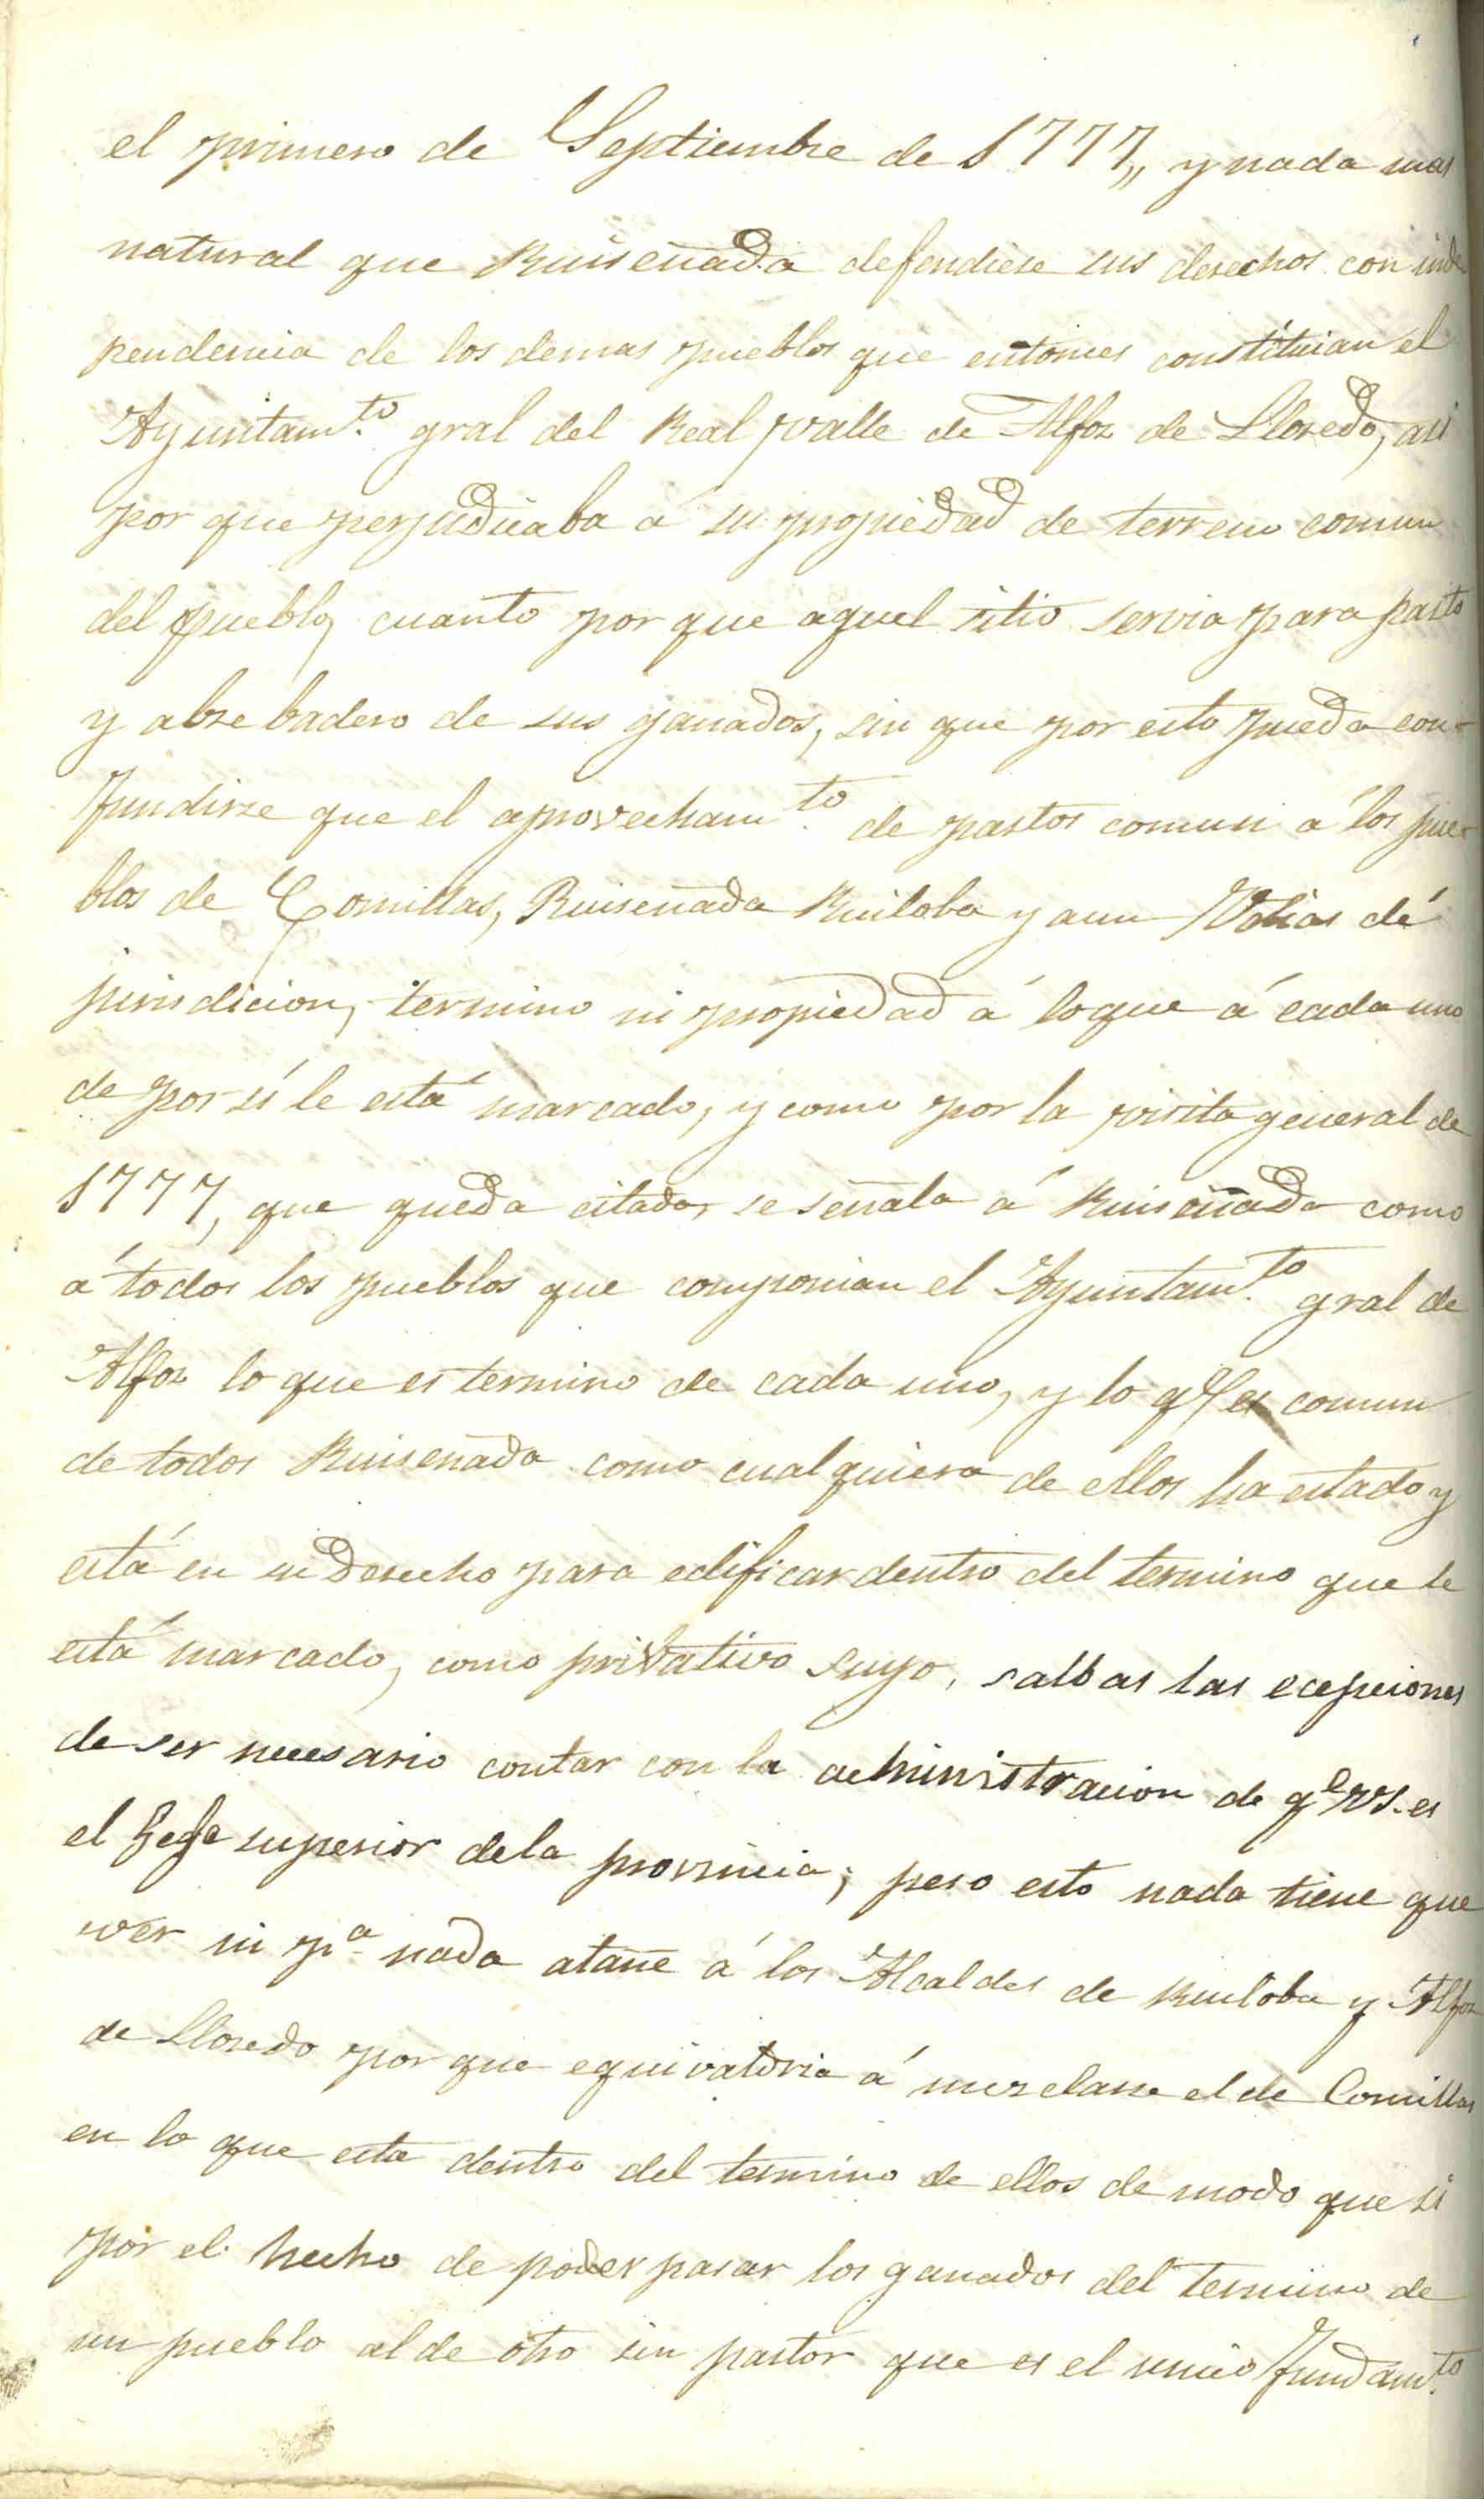 el primero de Septiembre de 1777,, y nada mas
natural que Ruiseñada defendiese sus derechos con inde
pendencia de los demas pueblos que entonces constituian el
Ayuntam.to gral del Real valle de Alfoz de Lloredo, asi
por que perjudicaba á su propiedad de terreno comun
del pueblo, cuanto por que aquel sitio servia para pasto
y abrebadero de sus ganados, sin que por esto pueda con-
fundirse que el aprovecham.to de pastos comun á los pue-
blos de Comillas, Ruiseñada Ruiloba y aun de
jurisdicion, termino ni propiedad á loque á cada uno
de por sí le está marcado, y como por la visita general de
1777, que queda citada, se señala á Ruiseñada como
á todos los pueblos que componian el Ayuntam.to gral de
Alfoz lo que es termino de cada uno, y lo q.e es comun
de todos Ruiseñada como cualquiera de ellos ha estado y
está en su Derecho para edificar dentro del termino que le
está marcado, como privativo suyo, salbas las ecepciones
de ser necesario contar con la administracion de q.e VS. es
el Gefe superior dela provincia; pero esto nada tiene que
ver ni p.a nada atañe á los Alcaldes de Ruiloba y Alfoz
de Lloredo por que equivaldria á mezclarse el de Comillas
en lo que esta dentro del termino de ellos de modo que si
por el hecho de poder pasar los ganados del termino de
un pueblo al de otro sin pastor que es el unico fundam.to